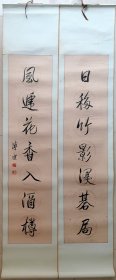 日移竹影浸碁局
風遞花香入酒樽